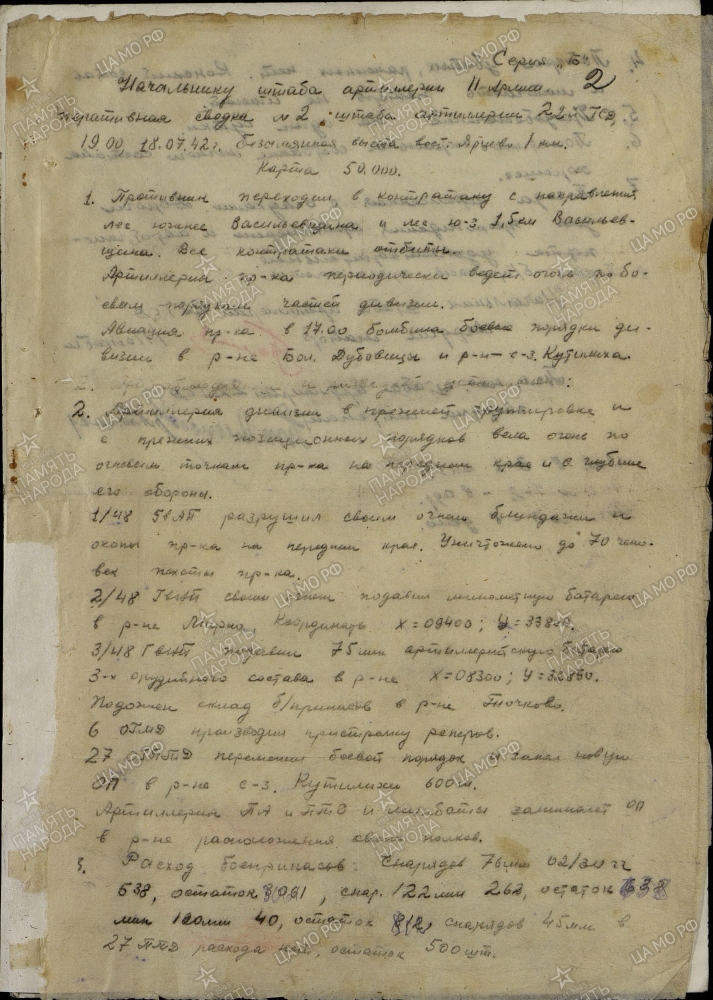 Серия "Б"
2
Начальнику штаба артиллерии 11 Армии
Оперативная сводка №2 штаба артиллерии 22 ГСД,
19.00, 18.07.42г. Безымянная высота вост. Ярцево 1 км.
Карта 50.000.
1. Противник переходил в контратаку с направления
лес южнее Васильевщина и лес ю-з 1,5 км Васильев-
щина. Все контратаки отбиты.
Артиллерия пр-ка периодически ведет огонь по бо-
евым порядкам частей дивизии.
Авиация пр-ка в 17.00 бомбила боевые порядки ди-
визии в р-не Бол. Дубовицы и р-н с-з. Кутилиха.
2. Артиллерия дивизии в прежней группировке и
с прежних позиционных порядков вела огонь по
огневым точкам пр-ка на переднем крае и в глубине
его обороны.
1/48 ГвАП разрушил своим огнем блиндажи и
окопы пр-ка на переднем крае. Уничтожено до 70 чело-
век пехоты пр-ка.
2/48 ГвАП своим огнем подавил минометную батарею
в р-не Координаты Х=09400;
3/48 ГвАП подавил 75мм артиллерийскую батарею
3-х орудийного состава в р-не Х=08300; У=32850.
Подожжен склад б/припасов в р-не
6 произвел пристрелку реперов.
27 переменил боевой порядок и занял новую
ОП в р-не с-з. Кутилиха 600м.
Артиллерия ПА и ПТО и минбаты занимают ОП
в р-не расположения своих полков.
3. Расход боеприпасов: Снарядов 76мм 02/30 гг
638, остаток снар. 122мм 262, остаток 638
мин 120мм 40, остаток снарядов 45мм в
27 расхода нет, остаток 500шт.
ПАМЯТЬ НАРОДА
ЦАМО.РФ